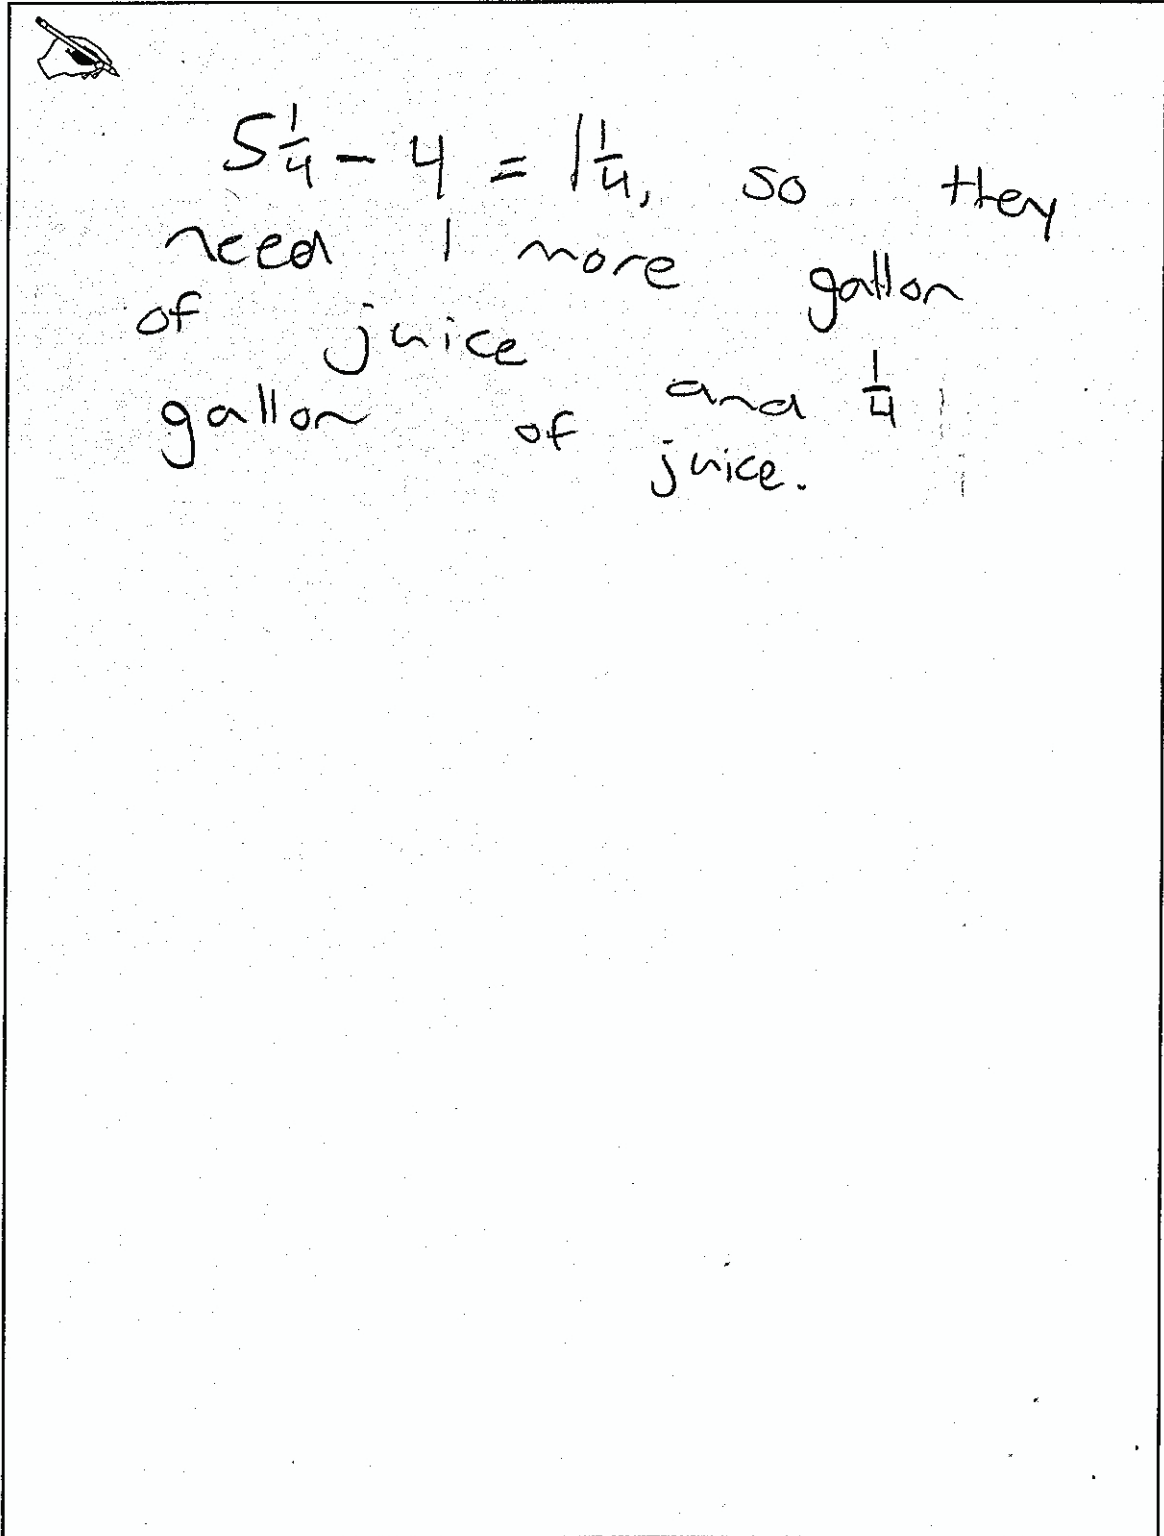 5 1/4 - 4 = 1 1/4, so they
need 1 more gallon
of juice and 1/4
gallon of juice.